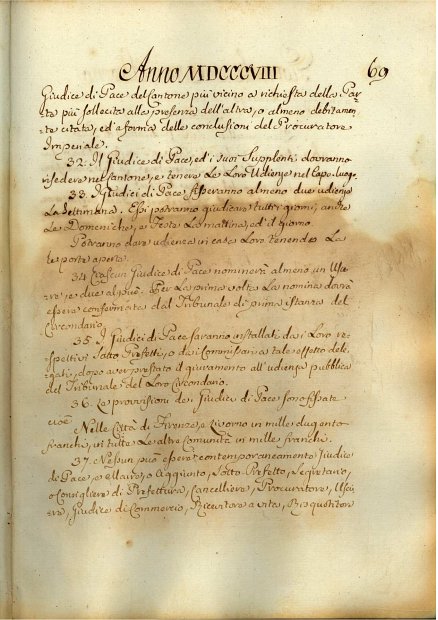 Anno MDCCCVIII
69
Giudice di Pace del Cantone più vicino a richiesta della Par-
te più sollecita alla presenza dell'altra, o almeno debitamen-
te citata, ed a forma delle conclusioni del Procuratore
Imperiale.
32. Il Giudice di Pace, ed i suoi Supplenti dovranno
risedere nel Cantone, e tenere Le Loro Udienze nel Capo-Luogo.
33. I Giudici di Pace fisseranno almeno due udienze
La Settimana. Essi potranno giudicare tutti i giorni, anche
Le Domeniche, e Feste La mattina, ed il giorno.
Potranno dare udienza in casa Loro tenendo La
te porte aperte.
34. Ciascun Giudice di Pace nominerà almeno un Us
re, e due al più. Per La prima volta La nomina dovrà
essere confermata dal Tribunale di prima istanza del
Circondario.
35. I Giudici di Pace saranno installati da i Loro re-
spettivi Sotto Prefetti, o da i Commissari a tale effetto dele-
gati, dopo aver prestato il giuramento all'udienza pubblica
del Tribunale del Loro Circondario.
36. Le provvisioni dei Giudici di Pace sono fissate
cioè
Nelle Città di Firenze, e Livorno in mille dugento
franchi, in tutte Le altre Comunità in mille franchi.
37. Nessun può essere contemporaneamente Giudice
di Pace, e Maire, o Aggiunto, Sotto-Prefetto, Segretario,
o Consigliere di Prefettura, Cancelliere, Procuratore, Usci-
ere, Giudice di Commercio, Ricevitore a vita, Riscuotitore